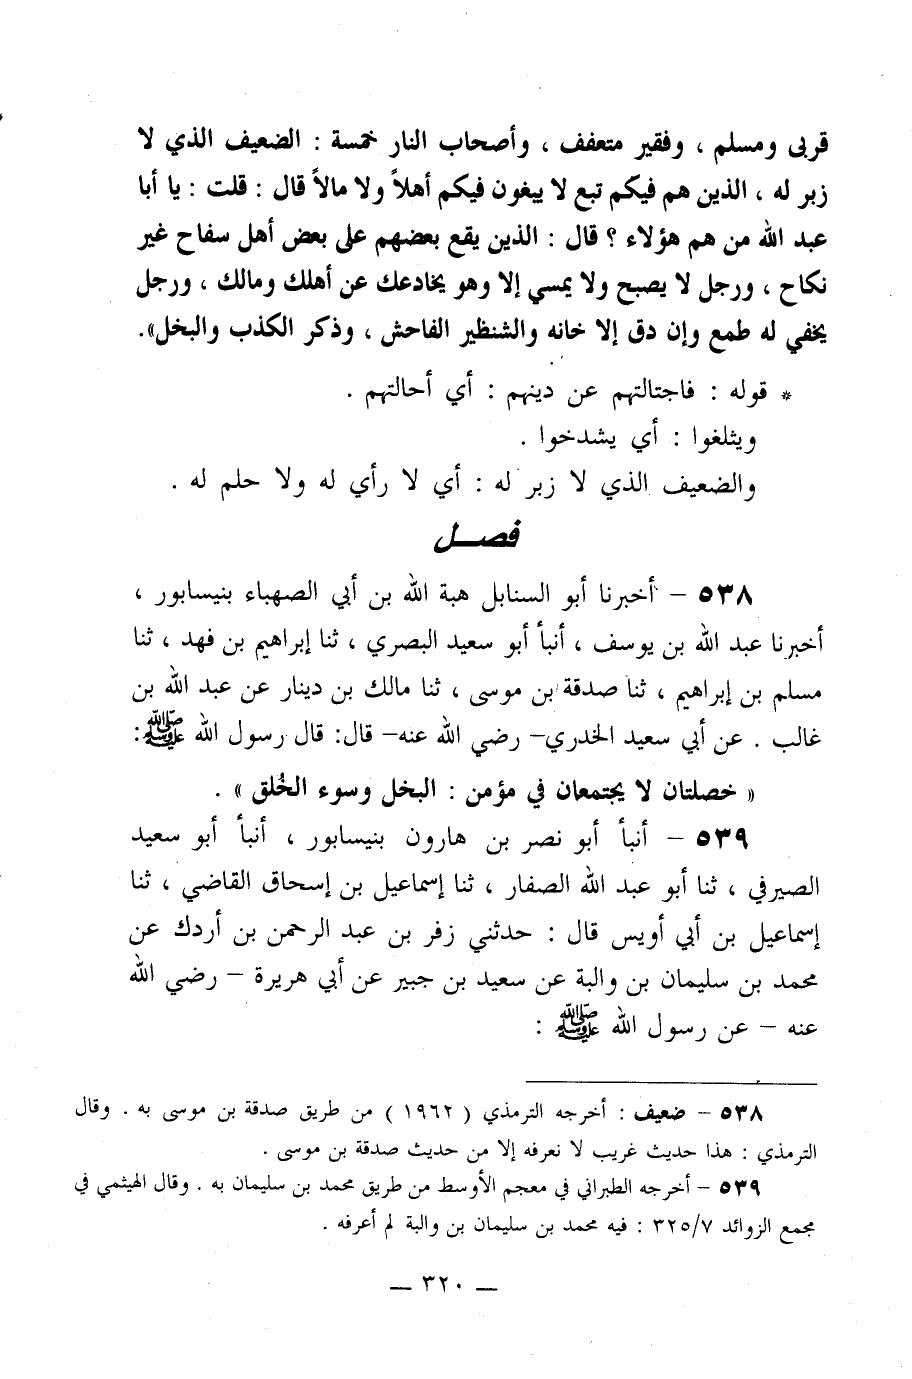 قربى ومسلم ، وفقير متعفف ، وأصحاب النار خمسة : الضعيف الذي لا
زبر له ، الذين هم فيكم تبع لا يبغون فيكم أهلاً ولا مالاً قال : قلت : يا أبا
عبد الله من هم هؤلاء ؟ قال : الذين يقع بعضهم على بعض أهل سفاح غير
نكاح ، ورجل لا يصبح ولا يمسي إلا وهو يخادعك عن أهلك ومالك ، ورجل
يخفي له طمع وإن دق إلا خانه والشنظير الفاحش ، وذكر الكذب والبخل».
* قوله : فاجتالتهم عن دينهم : أي أحالتهم .
ويثلغوا : أي يشدخوا .
والضعيف الذي لا زبر له : أي لا رأي له ولا حلم له .
فصــل
٥٣٨ – أخبرنا أبو السنابل هبة الله بن أبي الصهباء بنيسابور ،
أخبرنا عبد الله بن يوسف ، أنبأ أبو سعيد البصري ، ثنا إبراهيم بن فهد ، ثنا
مسلم بن إبراهيم ، ثنا صدقة بن موسى ، ثنا مالك بن دينار عن عبد الله بن
غالب . عن أبي سعيد الخدري– رضي الله عنه– قال: قال رسول الله ﷺ:
« خصلتان لا يجتمعان في مؤمن : البخل وسوء الخُلق » .
٥٣٩ – أنبأ أبو نصر بن هارون بنيسابور ، أنبأ أبو سعيد
الصيرفي ، ثنا أبو عبد الله الصفار ، ثنا إسماعيل بن إسحاق القاضي ، ثنا
إسماعيل بن أبي أويس قال : حدثني زفر بن عبد الرحمن بن أردك عن
محمد بن سليمان بن والبة عن سعيد بن جبير عن أبي هريرة – رضي الله
عنه – عن رسول الله ﷺ :
٥٣٨ – ضعيف : أخرجه الترمذي ( ١٩٦٢ ) من طريق صدقة بن موسى به . وقال
الترمذي : هذا حديث غريب لا نعرفه إلا من حديث صدقة بن موسى .
٥٣٩ – أخرجه الطبراني في معجم الأوسط من طريق محمد بن سليمان به . وقال الهيثمي في
مجمع الزوائد ٣٢٥/٧ : فيه محمد بن سليمان بن والبة لم أعرفه .
— ٣٢٠ —